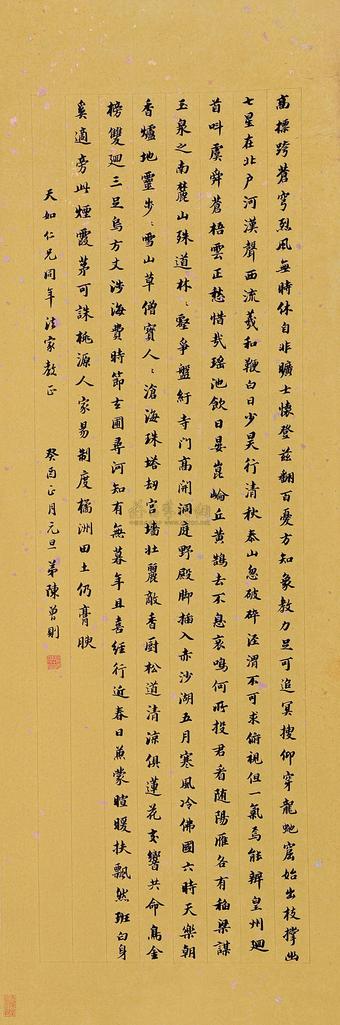 高標跨蒼穹烈風無時休自非曠士懷登茲翻百憂方知象教力足可追冥搜仰穿龍虵窟始出枝撐幽
七星在北戶河漢聲西流羲和鞭白日少昊行清秋泰山忽破碎涇渭不可求俯視但一氣焉能辨皇州廻
首叫虞舜蒼梧雲正愁惜哉瑶池飲日晏崑崙丘黃鵠去不息哀鳴何所投君看随陽雁各有稻粱謀
玉泉之南麓山殊道林〻壑爭盤紆寺門高開洞庭野殿脚插入赤沙湖五月寒風冷佛國六時天樂朝
香爐地靈步〻雪山草僧寶人〻滄海珠塔劫宮墻壯麗敵香厨松道清涼俱蓮花交響共命鳥金
榜雙廻三足烏方丈涉海費時節玄圃尋河知有無暮年且喜經行近春日兼蒙暄暖扶飄然班白身
奚適旁此煙霞茅可誅桃源人家易制度橘洲田土仍膏腴
天如仁兄同年法家教正
癸酉正月元旦弟陳曾則